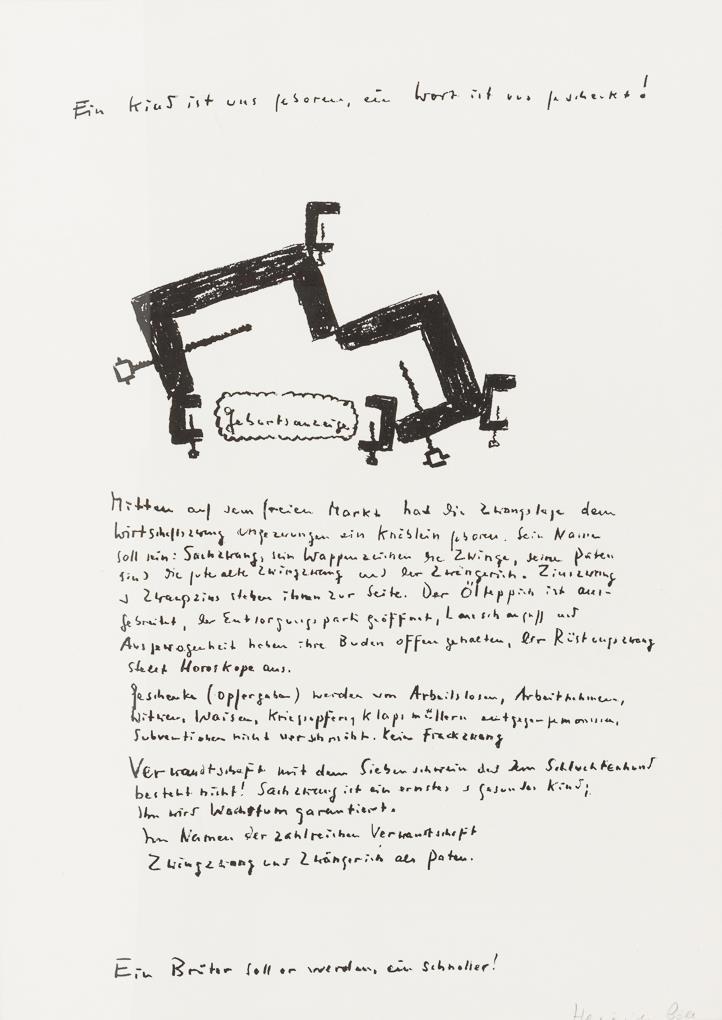 Ein Kind ist uns geboren, ein Wort ist uns geschenkt!
Geburtsanzeige
Mitten auf dem freien Markt hat die Zwangslage dem
Wirtschaftszwang ungezwungen ein Knäblein geboren. Sein Name
soll sein: Sachzwang, sein Wappenzeichen die Zwinge, seine Paten
sind die gute alte Zwingzwang und der Zwängerich. Zinszwang
u Zwangzins stehen ihnen zur Seite. Der Ölteppich ist aus-
gebreitet, der Entsorgungspark geöffnet, Lauschangriff und
Ausgewogenheit haben ihre Buden offen gehalten, der Rüstungszwang
stellt Horoskope aus.
Geschenke (Opfergaben) werden von Arbeitslosen, Arbeitnehmern,
Witwen, Waisen, Kriegsopfern, Klapsmüllern entgegengenommen,
Subventionen nicht verschmäht. Kein Frackzwang
Verwandtschaft mit dem Siebenschwein des dem Schluchtenhund
besteht nicht! Sachzwang ist ein ernstes u gesundes Kind,
Ihm wird Wachstum garantiert.
Im Namen der zahlreichen Verwandtschaft
Zwingzwang und Zwängerich als Paten.
Ein Brüter soll er werden, ein schneller!